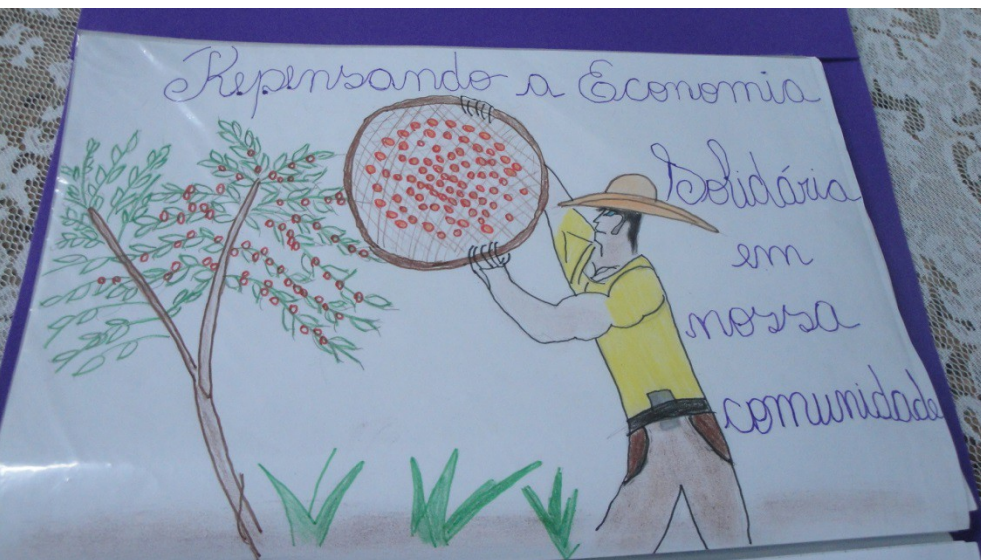 Repensando a Economia
Solidária
em
nossa
comunidade